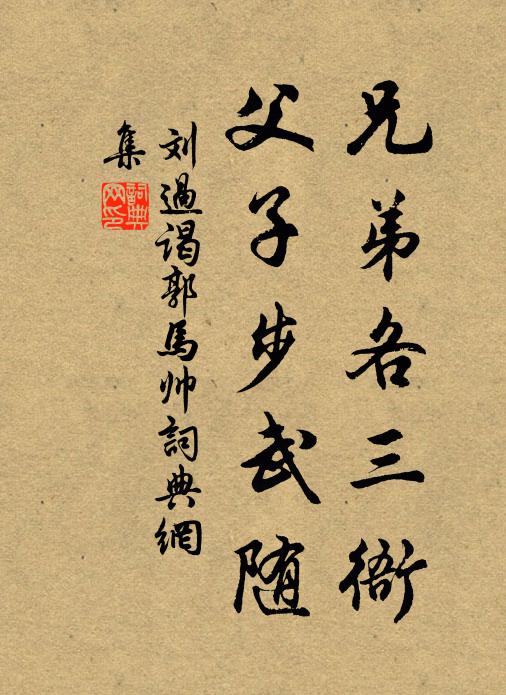 兄弟各三衙
父子步武随
刘過谒郭馬帅詞典網
集
詞典网印